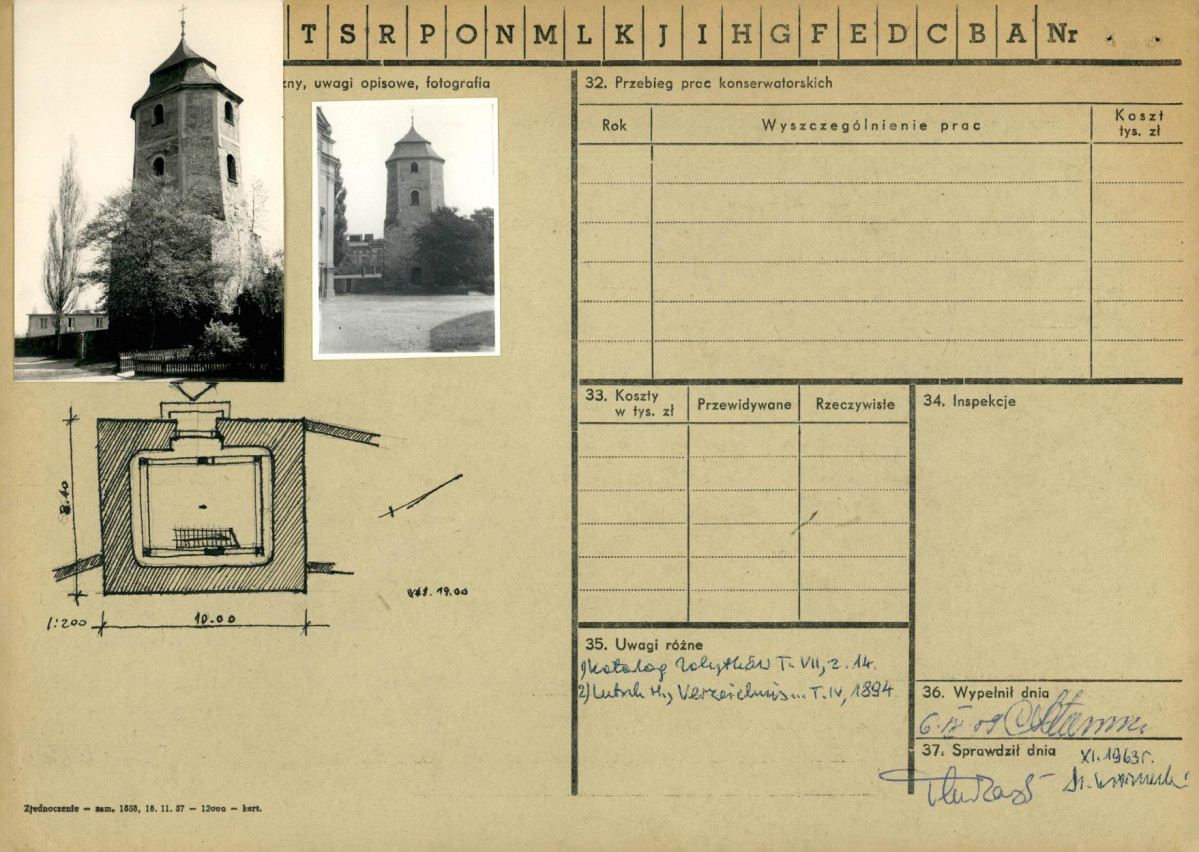 T S R P O N M L K J I H G F E D C B A Nr
zny, uwagi opisowe, fotografia
32. Przebieg prac konserwatorskich
Rok
Wyszczególnienie prac
Koszt
tys. zł
33. Koszty
w tys. zł
Przewidywane
Rzeczywiste
34. Inspekcje
8.40
1:200
10.00
wys. 19.00
35. Uwagi różne
1) Katalog Zabytków T. VII, z. 14.
2) Lutsch H., Verzeichnis... T. IV, 1894
36. Wypełnił dnia
6. IX 59
37. Sprawdził dnia
XI. 1963 r.
Zjednoczenie — zam. 1658, 16. 11. 57 — 12000 — kart.